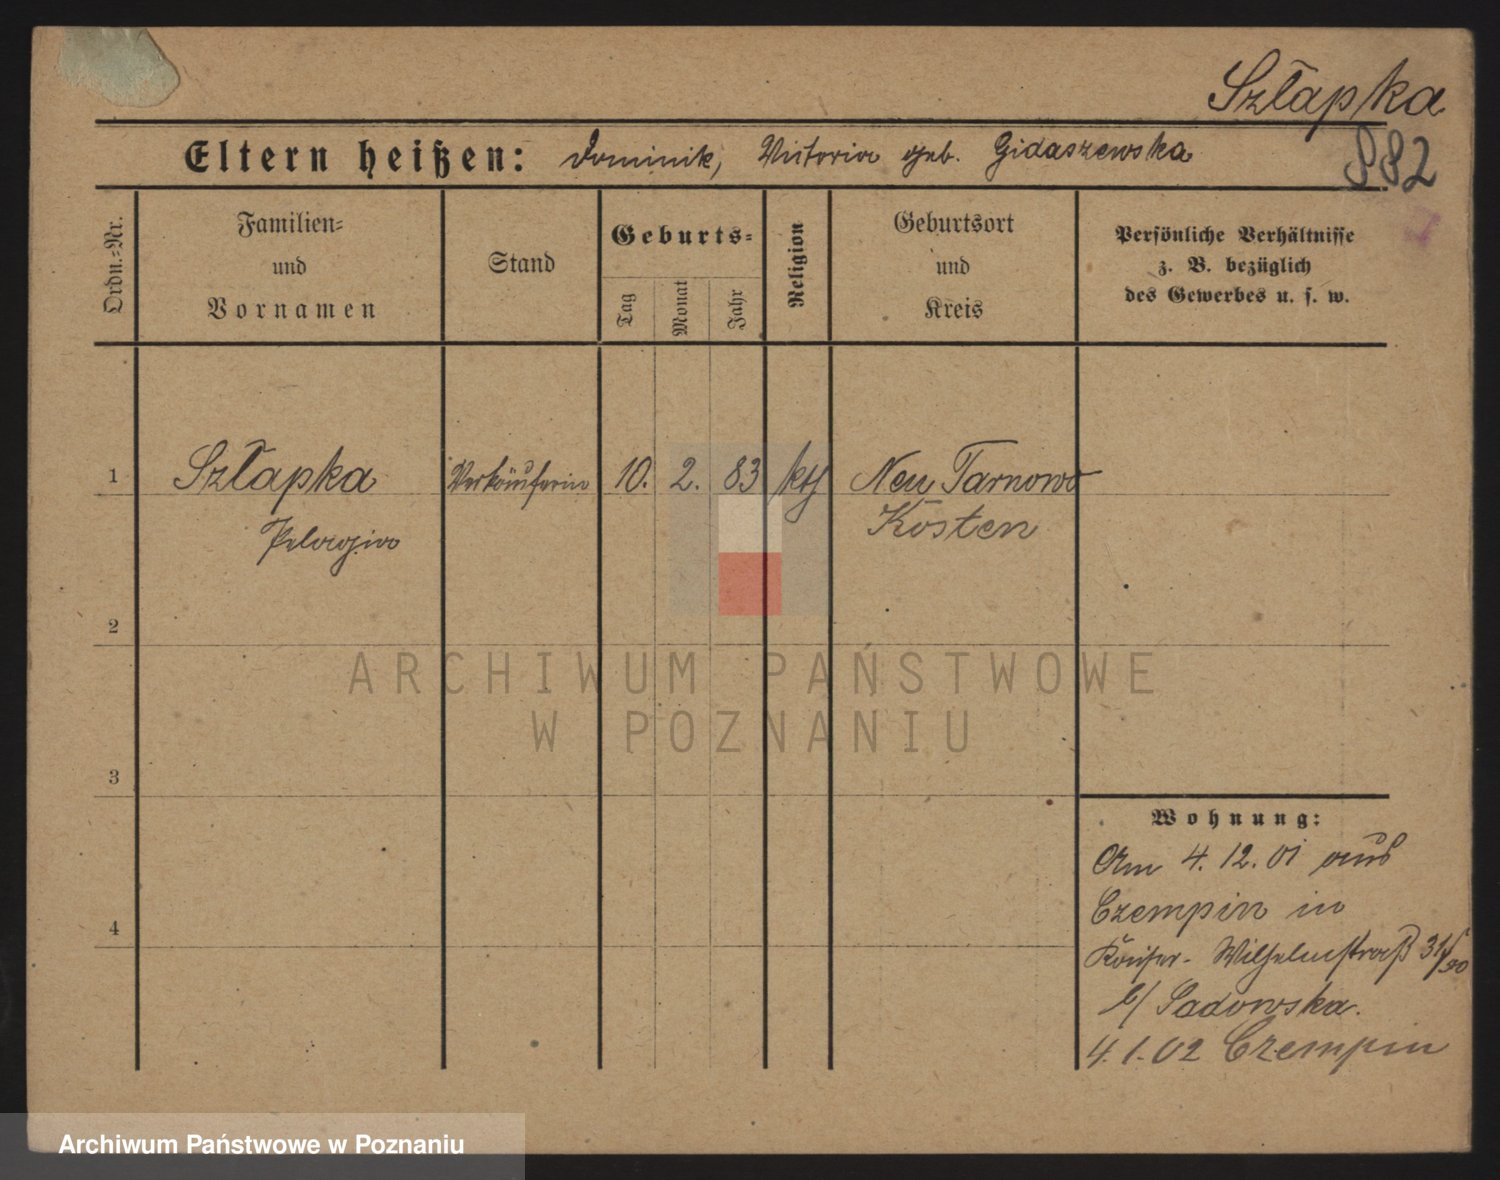 Szłapka
Eltern heißen: Dominik, Victoria geb. Gidaszewska
882
Ordn.-Nr.
Familien- und Vornamen
Stand
Geburts-
Tag
Monat
Jahr
Religion
Geburtsort und Kreis
Persönliche Verhältnisse
z. B. bezüglich
des Gewerbes u. s. w.
1 Szłapka Verkäuferin 10. 2. 83 kth Neu Tarnowo
Pelagia Kosten
2
3
4
Wohnung:
Am 4. 12. 01 aus
Czempin in
Kaiser-Wilhelmstraß 31/
b/ Sadowska.
4.1.02 Czempin
ARCHIWUM PAŃSTWOWE
W POZNANIU
Archiwum Państwowe w Poznaniu